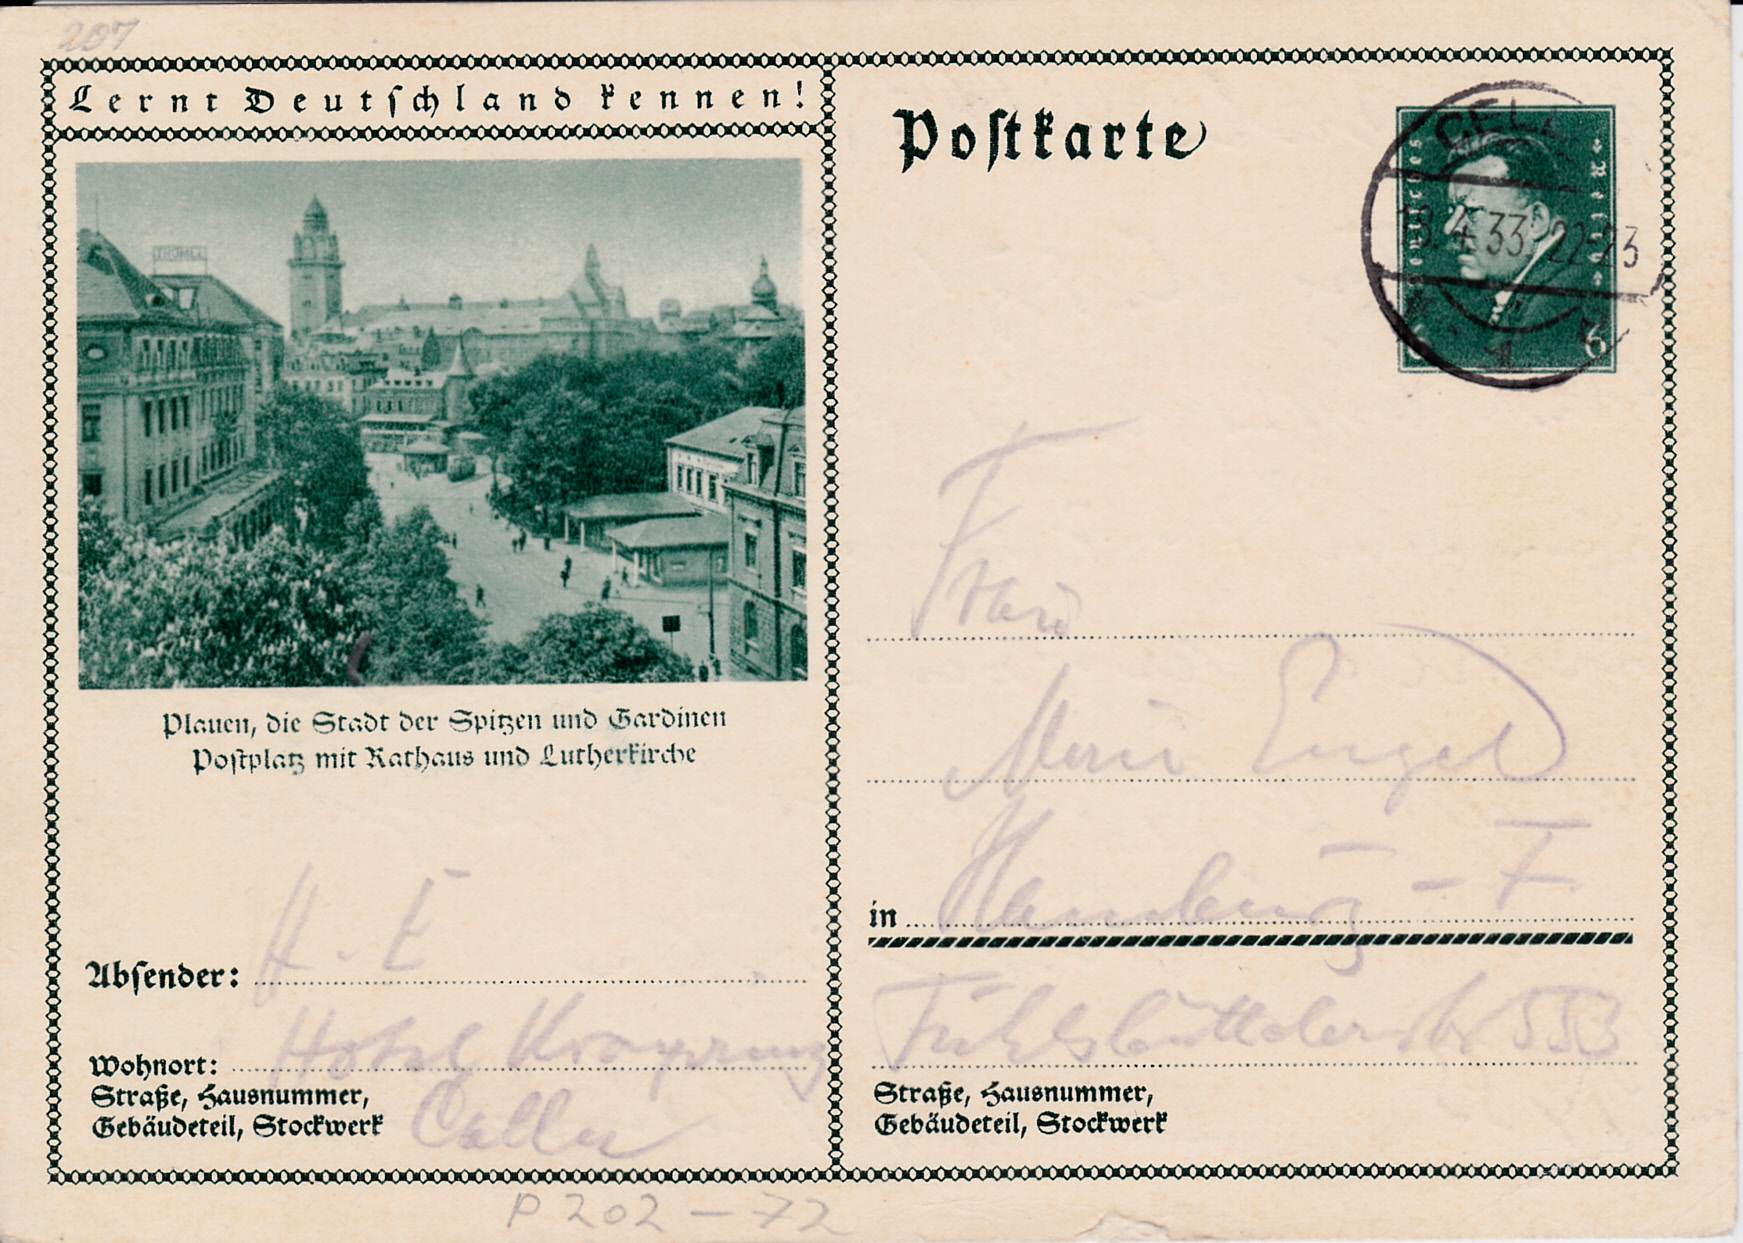 207
Lernt Deutschland kennen!
THOMEE
Plauen, die Stadt der Spitzen und Gardinen
Postplatz mit Rathaus und Lutherkirche
H. E
Absender:
Hotel Kronprinz
Wohnort:
Straße, Hausnummer,
Gebäudeteil, Stockwerk
Celle
P 202 - 72
Postkarte
Deutsches Reich
6 6
CELLE
18.4.33. 22-23
Frau
Marie Engel
in Hamburg - F
Fuhlsbüttelerstr 553
Straße, Hausnummer,
Gebäudeteil, Stockwerk